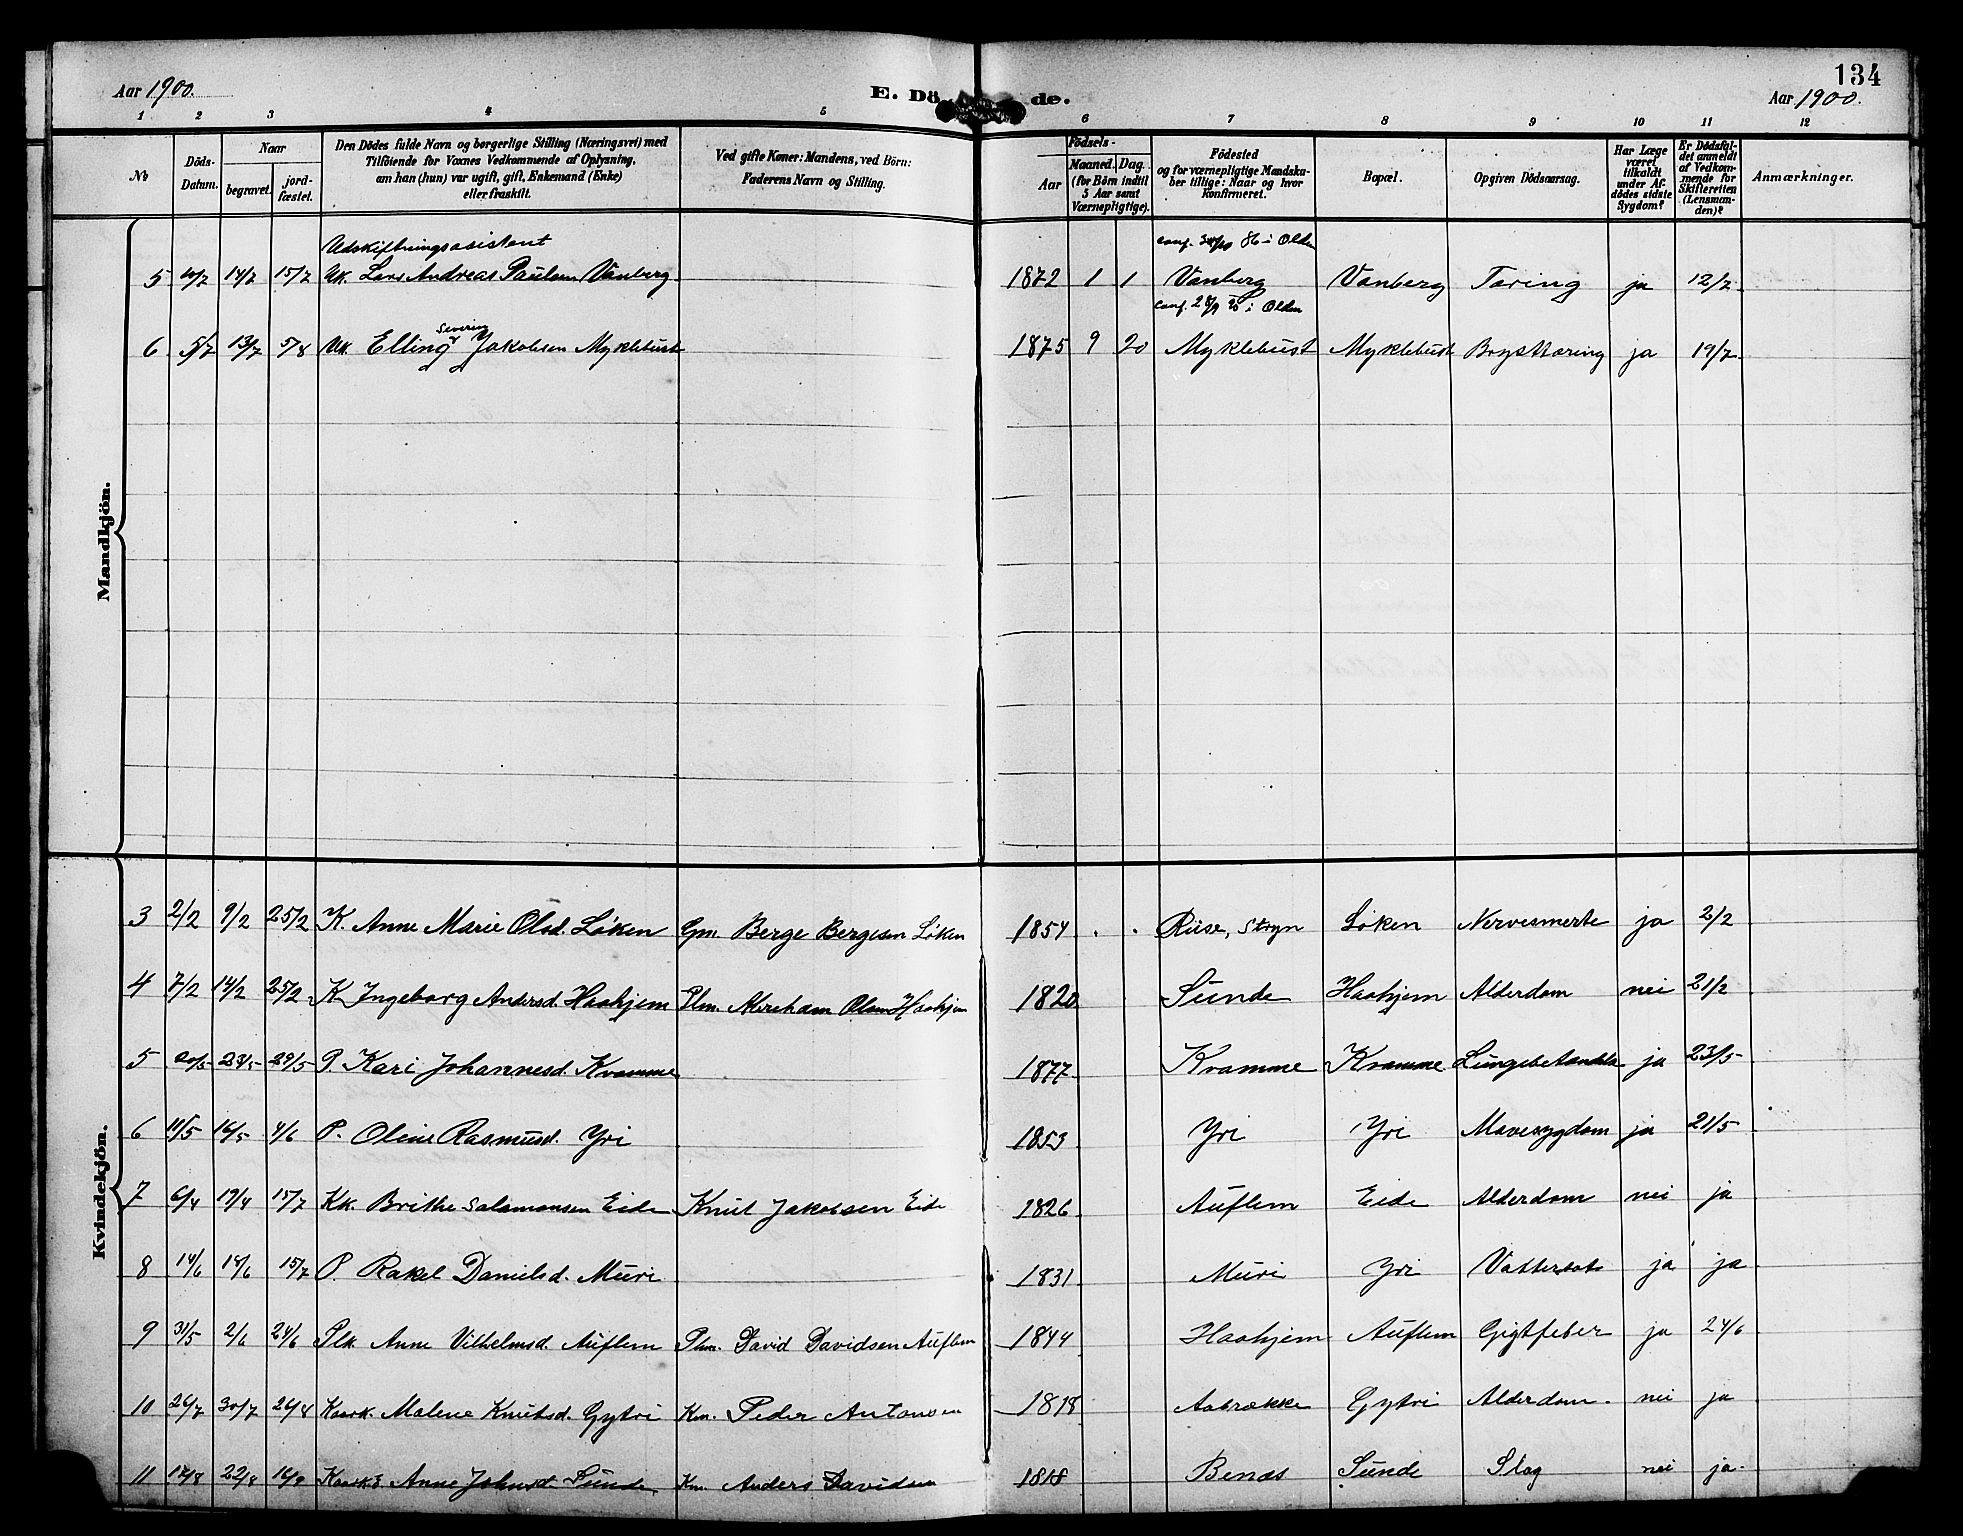 134
Aar 1900. E. Dö de. Aar 1900.
1 2 3 4 5 6 7 8 9 10 11 12
No
Döds-Datum.
Naar
begravet.
jord-fæstet.
Den Dödes fulde Navn og borgerlige Stilling (Næringsvei) med
Tilföiende for Voxnes Vedkommende af Oplysning,
om han (hun) var ugift, gift, Enkemand (Enke)
eller fraskilt.
Ved gifte Koner: Mandens, ved Börn:
Faderens Navn og Stilling.
Födsels-
Aar
Maaned. Dag.
(for Börn indtil
5 Aar samt
Værnepligtige).
Födested
og for værnepligtige Mandska-
ber tillige: Naar og hvor
konfirmeret.
Bopæl.
Opgiven Dödsaarsag.
Har Læge
været
tilkaldt
under Af-
dödes sidste
Sygdom?
Er Dödsfal-
det anmeldt
af Vedkom-
mende for
Skifteretten
(Lensman-
den)?
Anmærkninger.
Mandkjön.
Udskiftningsasistent conf. 86 i Olden
5 10/7 14/7 15/7 Uk. Lars Andreas Paulsen Vanberg 1872 1 1 Vanberg Vanberg Tæring ja 12/7
Severin conf. i Olden
6 5/7 13/7 5/8 Uk. Elling Jakobsen Myklebust 1875 9 20 Myklebust Myklebust Brysttæring ja 19/7
Kvindekjön.
3 2/2 9/2 25/2 K. Anne Marie Olsd. Løken Gm. Berge Bergesen Løken 1854 Riise, Stryn Løken Nervesmerte ja 2/2
4 7/2 14/2 25/2 K Ingeborg Andersd. Haahjem Plm. Abraham Olsen Haahjem 1820 Sunde Haahjem Alderdom nei 21/2
5 20/5 29/5 P. Kari Johannesd. Kvamme 1877 Kvamme Kvamme Lungebetændelse ja 23/5
6 11/5 16/5 4/6 P. Oline Rasmusd. Yri 1853 Yri Yri Mavesygdom ja 21/5
7 6/4 19/4 15/7 Kk. Brithe Salamonsen Eide Knut Jakobsen Eide 1826 Auflem Eide Alderdom nei ja
8 14/6 18/6 15/7 P. Rakel Danielsd. Muri 1831 Muri Yri Vattersot ja ja
9 31/5 2/6 24/6 Plk. Anne Vilhelmsd. Auflem Plm. David Davidsen Auflem 1844 Haahjem Auflem Gigtfeber ja 24/6
10 26/7 30/7 26/8 Kaark. Malene Knutsd. Gytri Km. Peder Antonsen 1818 Aabrække Gytri Alderdom. nei ja
11 17/8 22/8 16/9 Anne Johnsd. Sunde Km. Anders Davidsen 1818 Benæs Sunde Slag nei ja.